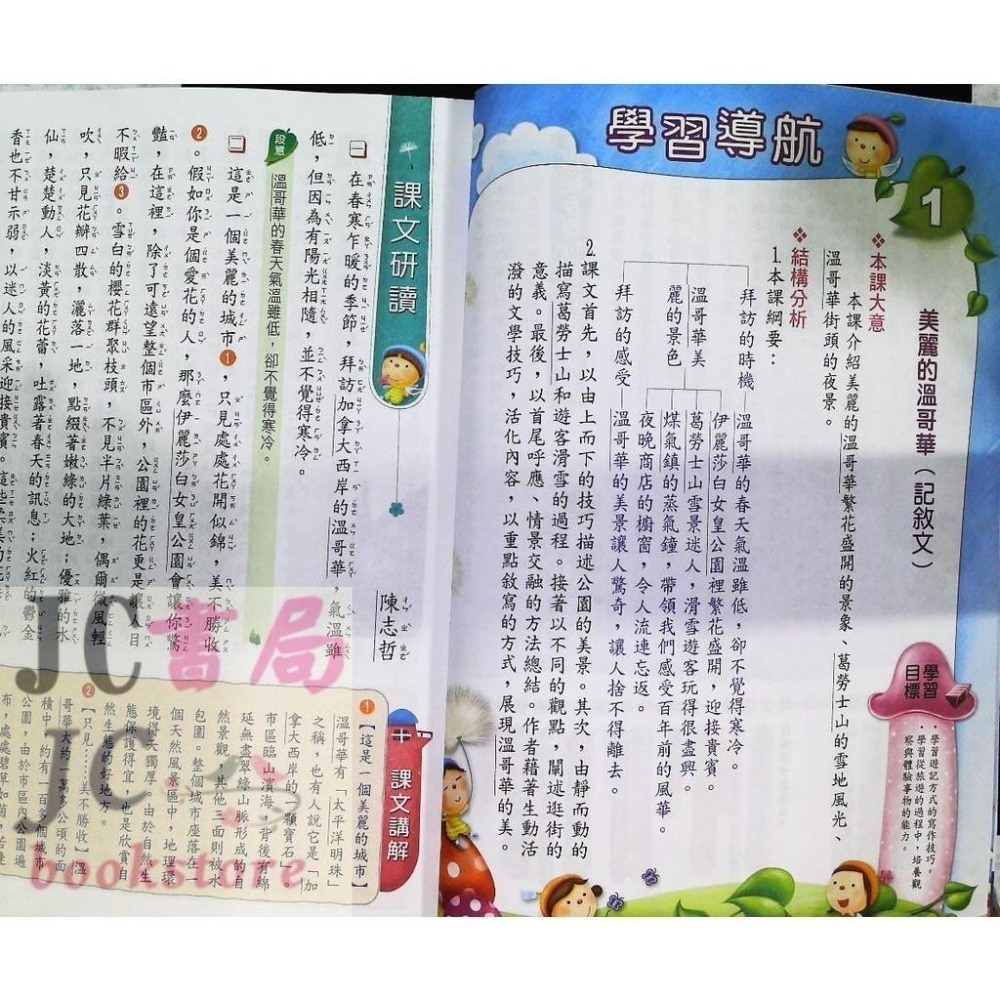 學習導航
1
美麗的溫哥華（記敘文）
學習目標
．學習遊記方式的寫作技巧。
．學習從旅遊的過程中，培養觀
察與體驗事物的能力。
❖本課大意
本課介紹美麗的溫哥華繁花盛開的景象、葛勞士山的雪地風光、
溫哥華街頭的夜景。
❖結構分析
1.本課綱要：
拜訪的時機
溫哥華的春天氣溫雖低，卻不覺得寒冷。
溫哥華美
麗的景色
伊麗莎白女皇公園裡繁花盛開，迎接貴賓。
葛勞士山雪景迷人，滑雪遊客玩得很盡興。
煤氣鎮的蒸氣鐘，帶領我們感受百年前的風華。
夜晚商店的櫥窗，令人流連忘返。
拜訪的感受
溫哥華的美景讓人驚奇，讓人捨不得離去。
2.課文首先，以由上而下的技巧描述公園的美景。其次，由靜而動的
描寫葛勞士山和遊客滑雪的過程。接者以不同的觀點，闡述逛街的
意義。最後，以首尾呼應、情景交融的方法總結。作者藉著生動活
潑的文學技巧，活化內容，以重點敘寫的方式，展現溫哥華的美。
課文研讀
陳志哲
一
在春寒乍暖的季節，拜訪加拿大西岸的溫哥華，氣溫雖
低，但因為有陽光相隨，並不覺得寒冷。
段意
溫哥華的春天氣溫雖低，卻不覺得寒冷。
二
這是一個美麗的城市❶，只見處處花開似錦，美不勝收
❷。假如你是個愛花的人，那麼伊麗莎白女皇公園會讓你驚
豔，在這裡，除了可遠望整個市區外，公園裡的花更是讓人目
不暇給❸。雪白的櫻花群聚枝頭，不見半片綠葉，偶爾微風輕
吹，只見花瓣四散，灑落一地，點綴著嫩綠的大地；優雅的水
仙，楚楚動人，淡黃的花蕾，吐露著春天的訊息；火紅的鬱金
香也不甘示弱，以迷人的風采迎接貴賓。這些
課文講解
❶【這是一個美麗的城市】
溫哥華有「太平洋明珠」
之稱，也有人說它是「加
拿大西岸的一顆寶石」。
市區臨山濱海，背後有綿
延無盡翠綠山脈形成的自
然景觀，其他三面則被水
包圍。整個城市座落在一
個天然風景區中，地理環
境得天獨厚，由於自然生
能保護得宜，也是欣賞自
然生態的好地方。
❷【只見……美不勝收】溫
哥華大約一萬多公頃的面
積中，約有一百
公園，由於市區內公園遍
布，處處碧草如茵，
JC書局
JC
bookstore